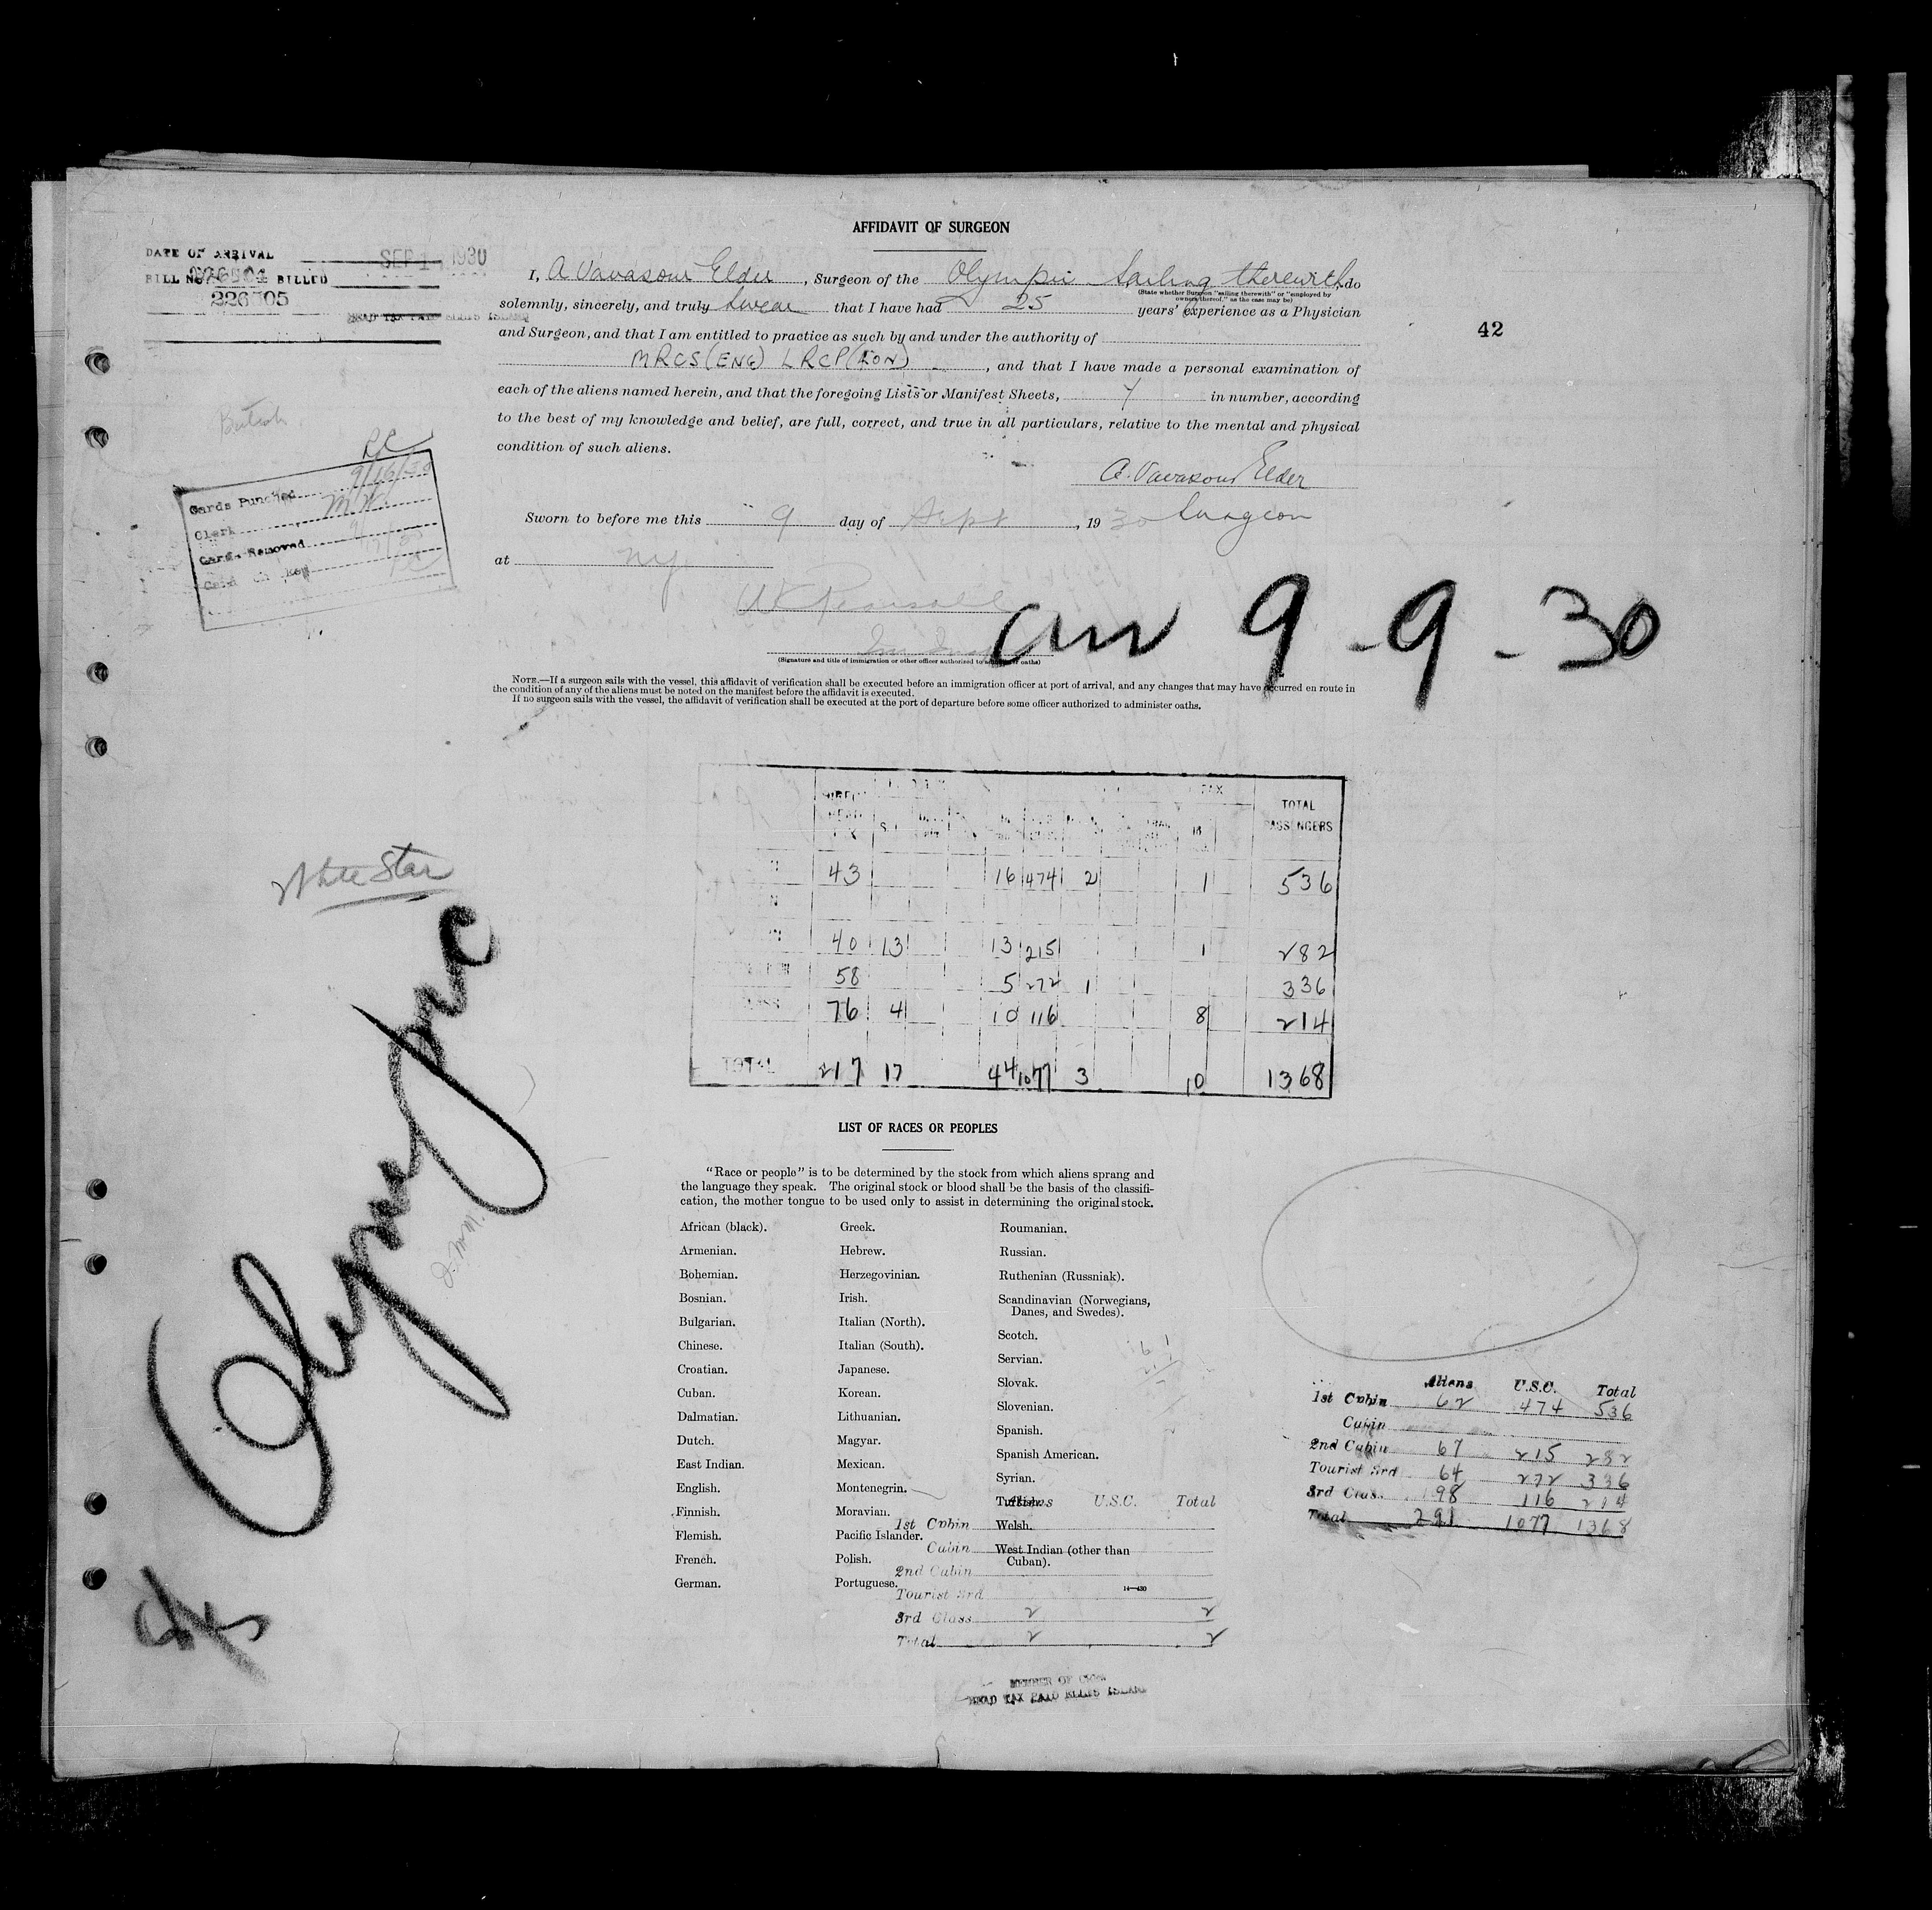 AFFIDAVIT OF SURGEON
DATE OF ARRIVAL SEP 1930
BILL NO. BILLED
226705
HEAD TAX PAID ELLIS ISLAND
42
I, A Vavasour Elder, Surgeon of the Olympic Sailing therewith, do
(State whether Surgeon "sailing therewith" or "employed by
owners thereof," as the case may be)
solemnly, sincerely, and truly Swear that I have had 25 years' experience as a Physician
and Surgeon, and that I am entitled to practice as such by and under the authority of
MRCS (ENG) LRCP (LON), and that I have made a personal examination of
each of the aliens named herein, and that the foregoing Lists or Manifest Sheets, 7 in number, according
to the best of my knowledge and belief, are full, correct, and true in all particulars, relative to the mental and physical
condition of such aliens.
A. Vavasour Elder
Surgeon
Sworn to before me this 9 day of Sept, 1930
at NY
(Signature and title of immigration or other officer authorized to administer oaths)
British
Cards Punched 9/16/30
Clerk M.W.
Cards Removed
Card ch ked
arr 9-9-30
NOTE.—If a surgeon sails with the vessel, this affidavit of verification shall be executed before an immigration officer at port of arrival, and any changes that may have occurred en route in
the condition of any of the aliens must be noted on the manifest before the affidavit is executed.
If no surgeon sails with the vessel, the affidavit of verification shall be executed at the port of departure before some officer authorized to administer oaths.
White Star
Olympic
TOTAL
PASSENGERS
43 16 474 2 1 536
40 13 13 215 1 282
58 5 272 1 336
76 4 10 116 8 214
TOTAL 217 17 44 1077 3 10 1368
LIST OF RACES OR PEOPLES
"Race or people" is to be determined by the stock from which aliens sprang and
the language they speak. The original stock or blood shall be the basis of the classifi-
cation, the mother tongue to be used only to assist in determining the original stock.
African (black).
Armenian.
Bohemian.
Bosnian.
Bulgarian.
Chinese.
Croatian.
Cuban.
Dalmatian.
Dutch.
East Indian.
English.
Finnish.
Flemish.
French.
German.
Greek.
Hebrew.
Herzegovinian.
Irish.
Italian (North).
Italian (South).
Japanese.
Korean.
Lithuanian.
Magyar.
Mexican.
Montenegrin.
Moravian.
Pacific Islander.
Polish.
Portuguese.
Roumanian.
Russian.
Ruthenian (Russniak).
Scandinavian (Norwegians,
Danes, and Swedes).
Scotch.
Servian.
Slovak.
Slovenian.
Spanish.
Spanish American.
Syrian.
Turkish.
Welsh.
West Indian (other than
Cuban).
14—430
Aliens U.S.C. Total
1st Cabin 62 474 536
Cabin
2nd Cabin 67 215 282
Tourist 3rd 64 272 336
3rd Class 98 116 214
Total 291 1077 1368
Aliens U.S.C. Total
1st Cabin
Cabin
2nd Cabin
Tourist 3rd
3rd Class 2 2
Total 2 2
MEMBER OF CREW
HEAD TAX PAID ELLIS ISLAND